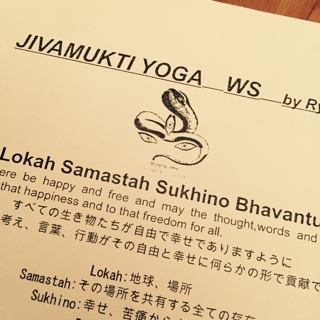 JIVAMUKTI YOGA WS by Ry
Lokah Samastah Sukhino Bhavantu
ere be happy and free and may the thought,words and
that happiness and to that freedom for all.
すべての生き物たちが自由で幸せでありますように
考え、言葉、行動がその自由と幸せに何らかの形で貢献で
Lokah:地球、場所
Samastah:その場所を共有する全ての存在
Sukhino:幸せ、苦痛から